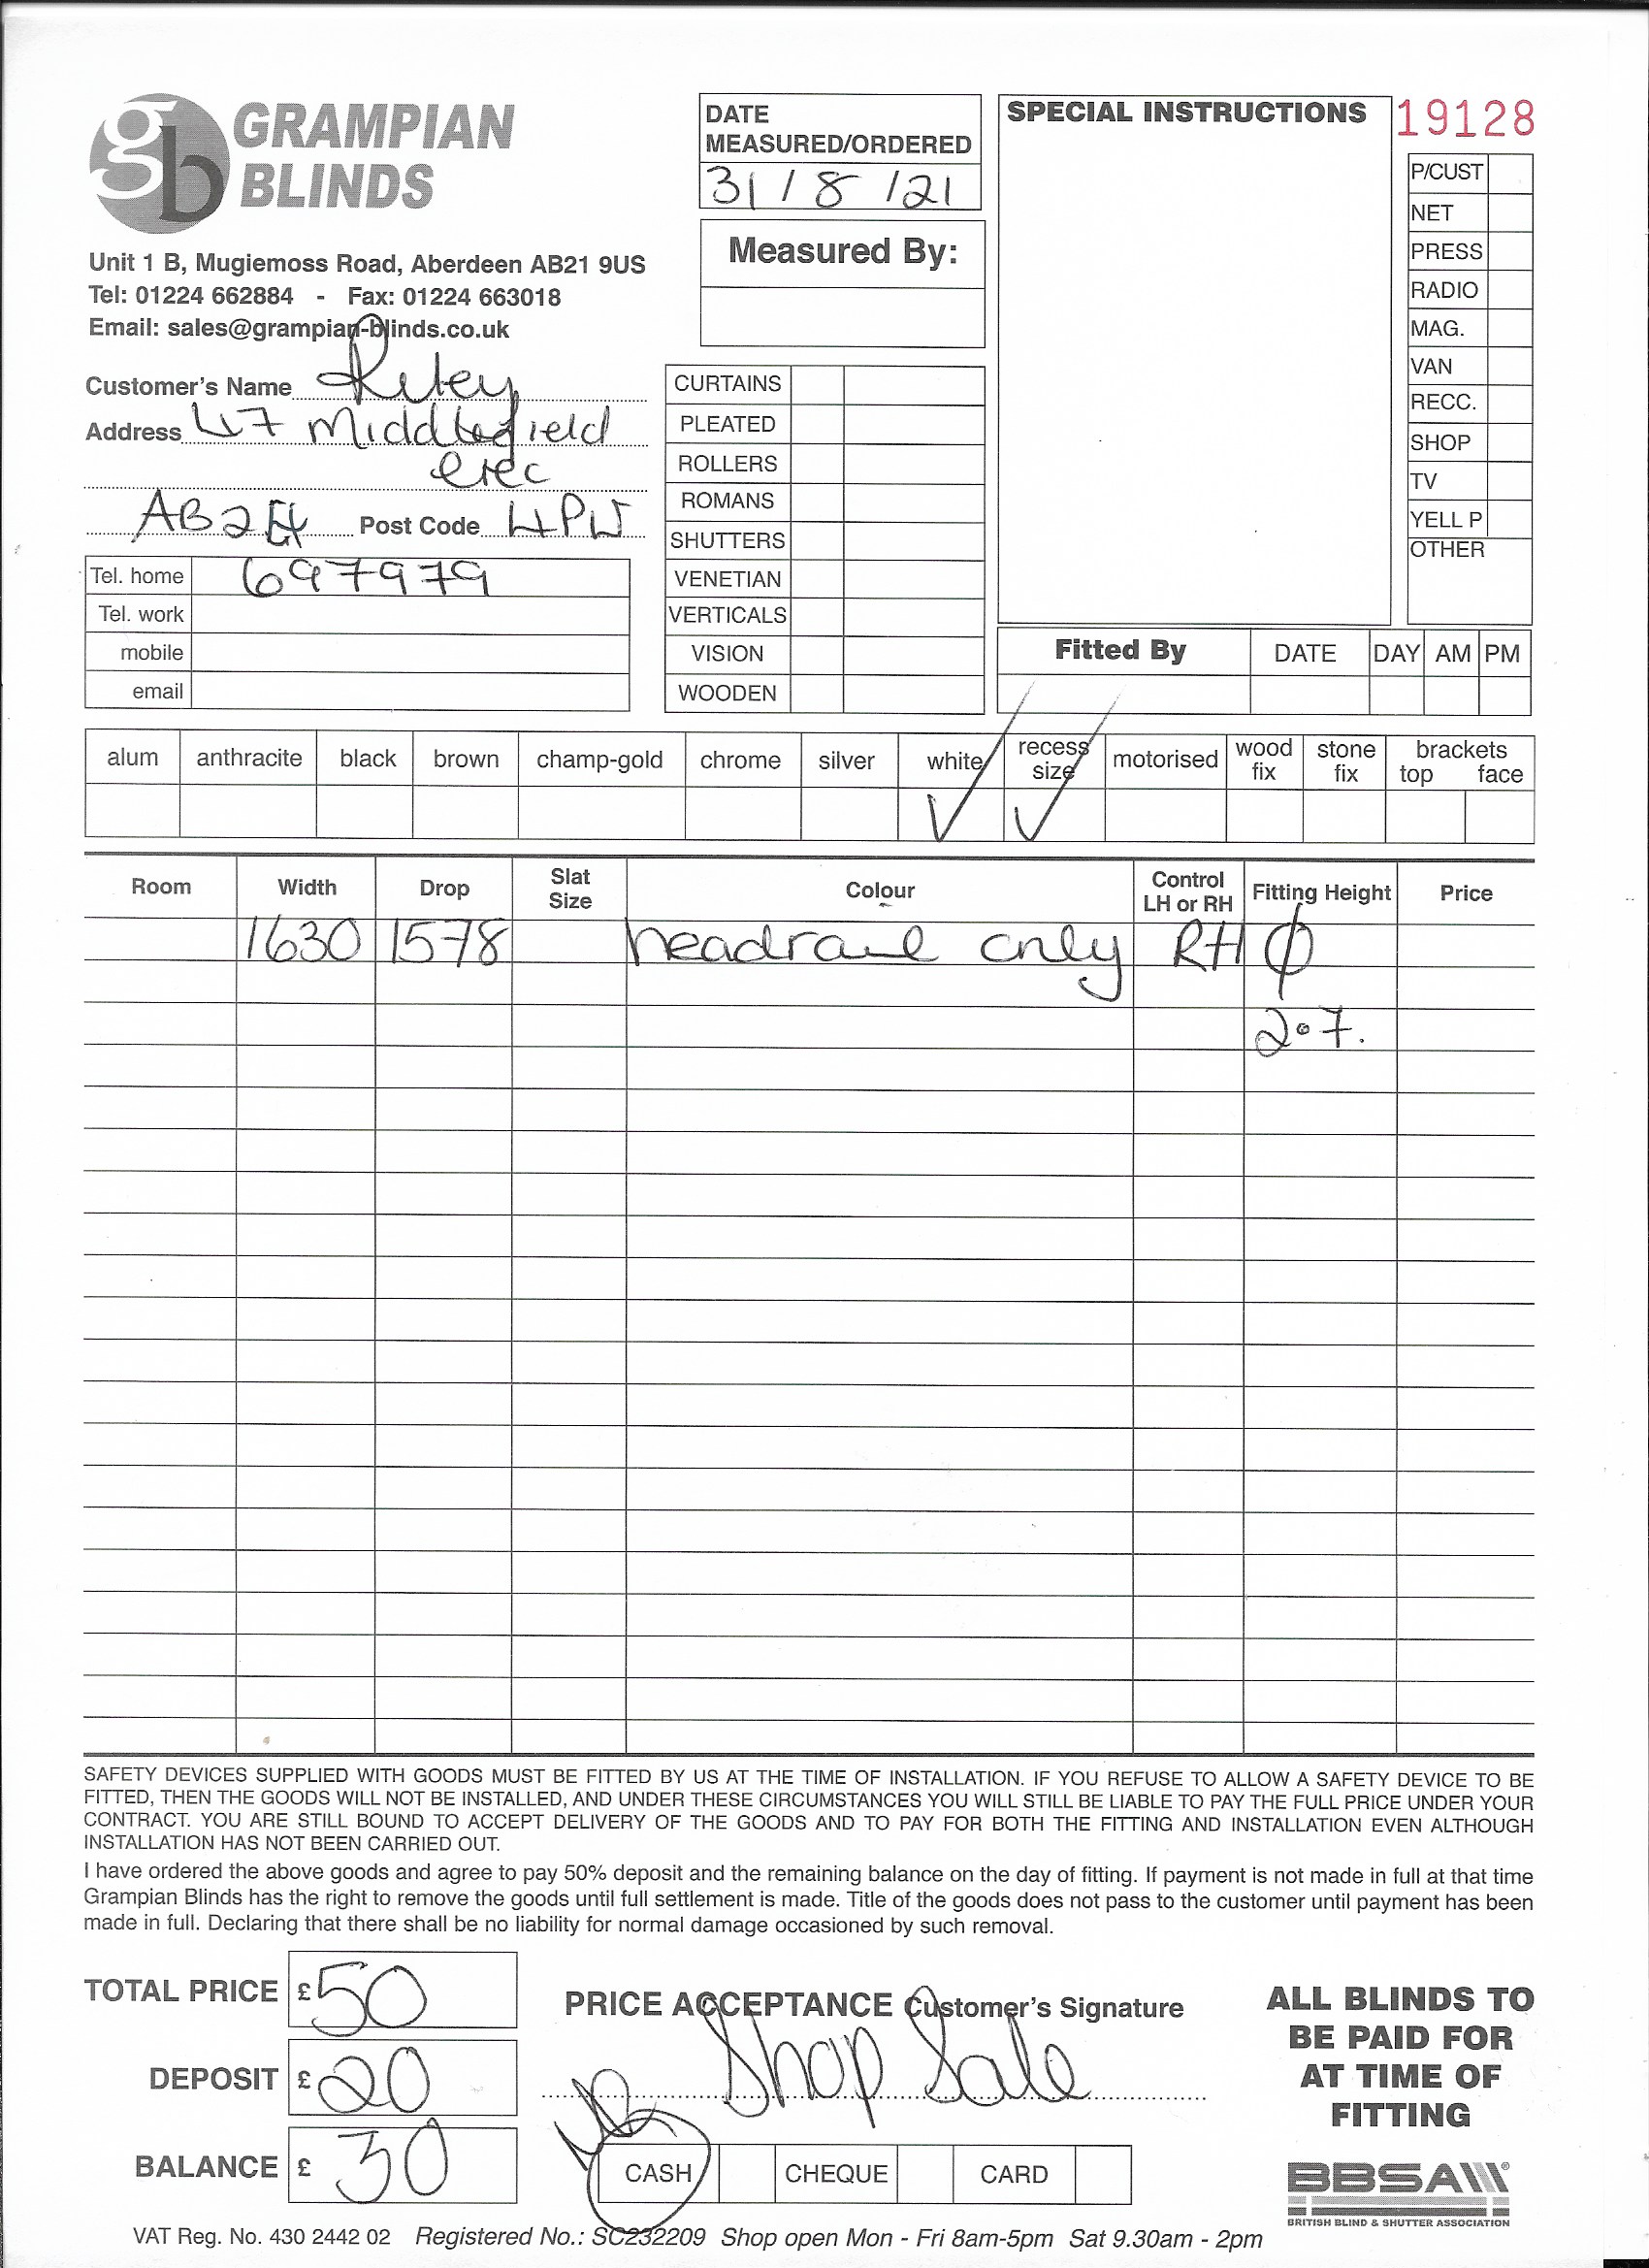 gb GRAMPIAN
BLINDS
Unit 1 B, Mugiemoss Road, Aberdeen AB21 9US
Tel: 01224 662884 - Fax: 01224 663018
Email: sales@grampian-blinds.co.uk
Customer's Name Riley
Address 47 Middlefield
cres
AB24 Post Code 4PW
Tel. home 697979
Tel. work
mobile
email
DATE
MEASURED/ORDERED
31/8/21
Measured By:
CURTAINS
PLEATED
ROLLERS
ROMANS
SHUTTERS
VENETIAN
VERTICALS
VISION
WOODEN
SPECIAL INSTRUCTIONS
19128
P/CUST
NET
PRESS
RADIO
MAG.
VAN
RECC.
SHOP
TV
YELL P
OTHER
Fitted By DATE DAY AM PM
alum anthracite black brown champ-gold chrome silver white recess size motorised wood fix stone fix brackets top face
✓ ✓
Room Width Drop Slat Size Colour Control LH or RH Fitting Height Price
1630 1578 headrail only RH ϕ
2.7.
SAFETY DEVICES SUPPLIED WITH GOODS MUST BE FITTED BY US AT THE TIME OF INSTALLATION. IF YOU REFUSE TO ALLOW A SAFETY DEVICE TO BE
FITTED, THEN THE GOODS WILL NOT BE INSTALLED, AND UNDER THESE CIRCUMSTANCES YOU WILL STILL BE LIABLE TO PAY THE FULL PRICE UNDER YOUR
CONTRACT. YOU ARE STILL BOUND TO ACCEPT DELIVERY OF THE GOODS AND TO PAY FOR BOTH THE FITTING AND INSTALLATION EVEN ALTHOUGH
INSTALLATION HAS NOT BEEN CARRIED OUT.
I have ordered the above goods and agree to pay 50% deposit and the remaining balance on the day of fitting. If payment is not made in full at that time
Grampian Blinds has the right to remove the goods until full settlement is made. Title of the goods does not pass to the customer until payment has been
made in full. Declaring that there shall be no liability for normal damage occasioned by such removal.
TOTAL PRICE £50
DEPOSIT £20
BALANCE £ 30
PRICE ACCEPTANCE Customer's Signature
Shop Sale
CASH CHEQUE CARD
ALL BLINDS TO
BE PAID FOR
AT TIME OF
FITTING
BBSA
BRITISH BLIND & SHUTTER ASSOCIATION
VAT Reg. No. 430 2442 02 Registered No.: SC232209 Shop open Mon - Fri 8am-5pm Sat 9.30am - 2pm